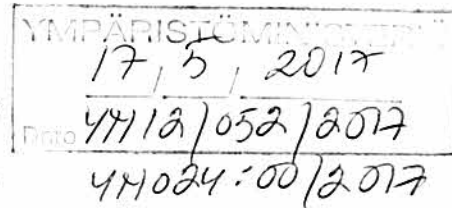 YMPÄRISTÖMINISTERIÖ
17, 5, 2017
Dnro YM12/052/2017
YM024:00/2017